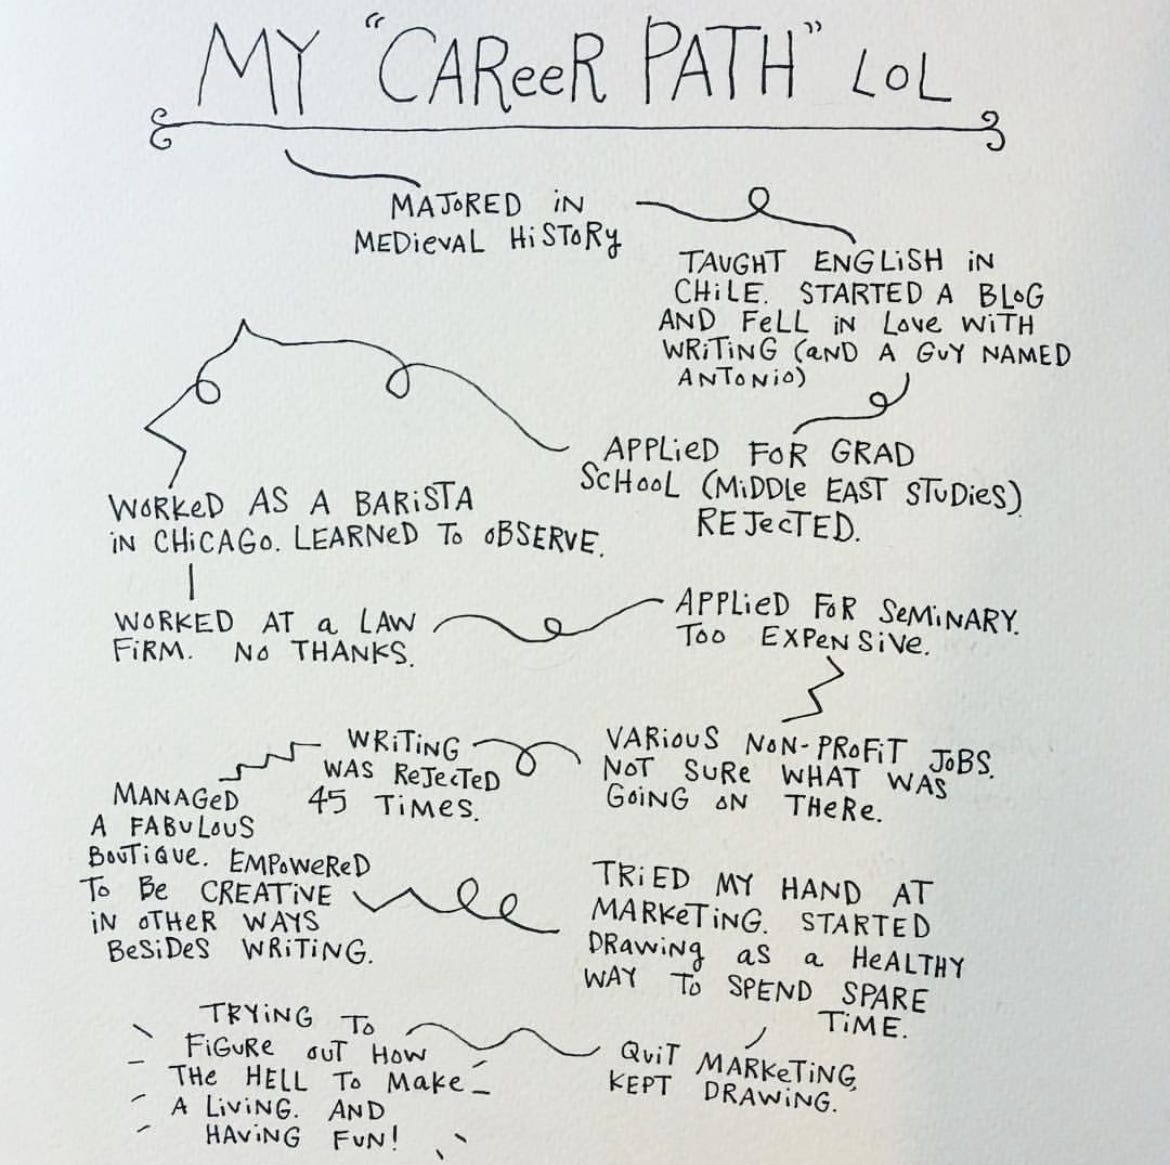 MY "CAReeR PATH" LOL
MAJORED iN
MEDieVAL HiSTORy
TAUGHT ENGLiSH iN
CHiLE. STARTED A BLOG
AND FeLL iN Love WiTH
WRiTiNG (aND A GUY NAMED
ANTONiO)
APPLiED FOR GRAD
SCHOOL (MiDDLe EAST STUDieS)
REJecTED.
WORKeD AS A BARiSTA
iN CHiCAGO. LEARNeD To OBSERVE.
WORKED AT a LAW
FiRM. No THANKS.
APPLieD FOR SeMiNARY.
Too EXPENSiVe.
VARioUS NON-PROFiT JOBS.
NOT SURe WHAT WAS
GOiNG ON THeRe.
WRiTiNG
WAS ReJecTED
45 TiMeS.
MANAGeD
A FABULOUS
BOUTiQUe. EMPOWeReD
To Be CREATiVE
iN OTHeR WAYS
BeSiDeS WRiTiNG.
TRiED MY HAND AT
MARKeTiNG. STARTED
DRawiNg aS a HeALTHY
WAY To SPEND SPARE
TiME.
QUiT MARKeTiNG,
KEPT DRAWiNG.
TRYiNG To
FiGURe OUT HOW
THe HELL To MaKe
A LiViNG. AND
HAViNG FUN!